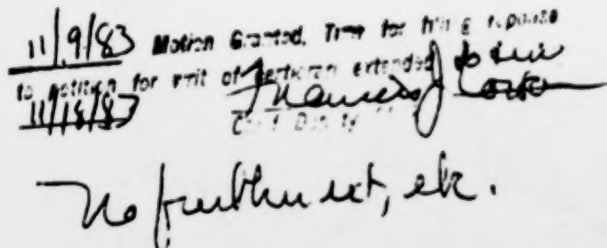 11/9/83 Motion Granted. Time for filing response
to petition for writ of certiorari extended to
11/18/83 Francis J.
Chief Deputy
No further ext, etc.